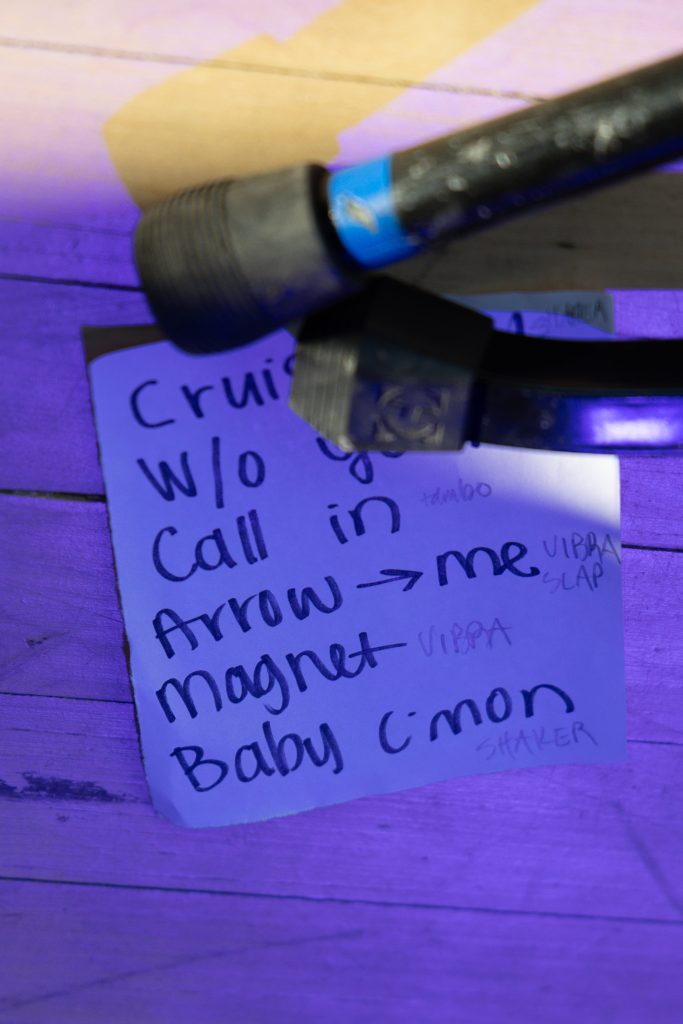 W/o
Call in tambo
Arrow → me VIBRA
SLAP
Magnet VIBRA
Baby C'mon
SHAKER